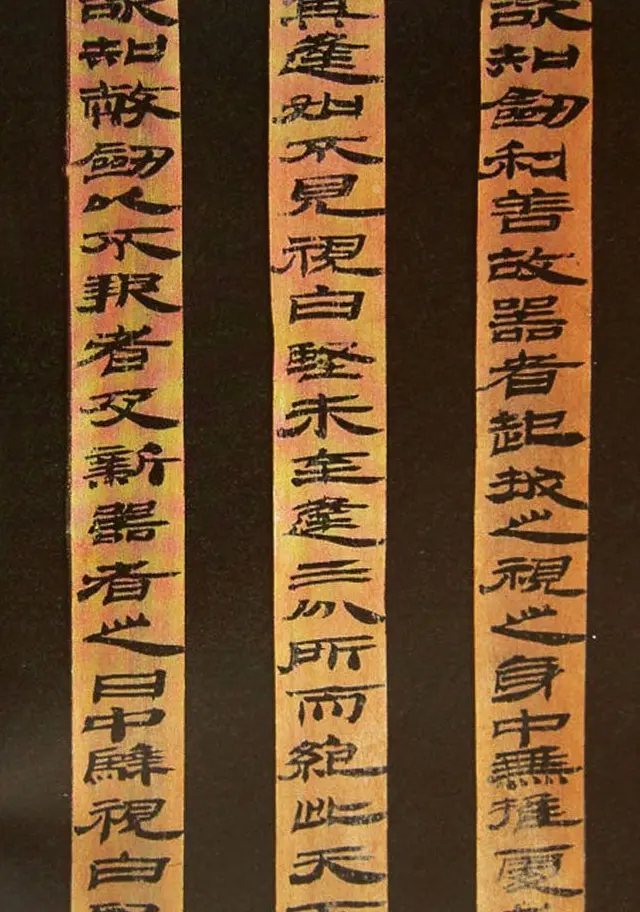 欲知劒利善故器者起拔之視之身中無推處
其逢如不見視白堅未至逢三分所而絕此天下
欲知敝劒以不報者及新器者之日中騂視白堅